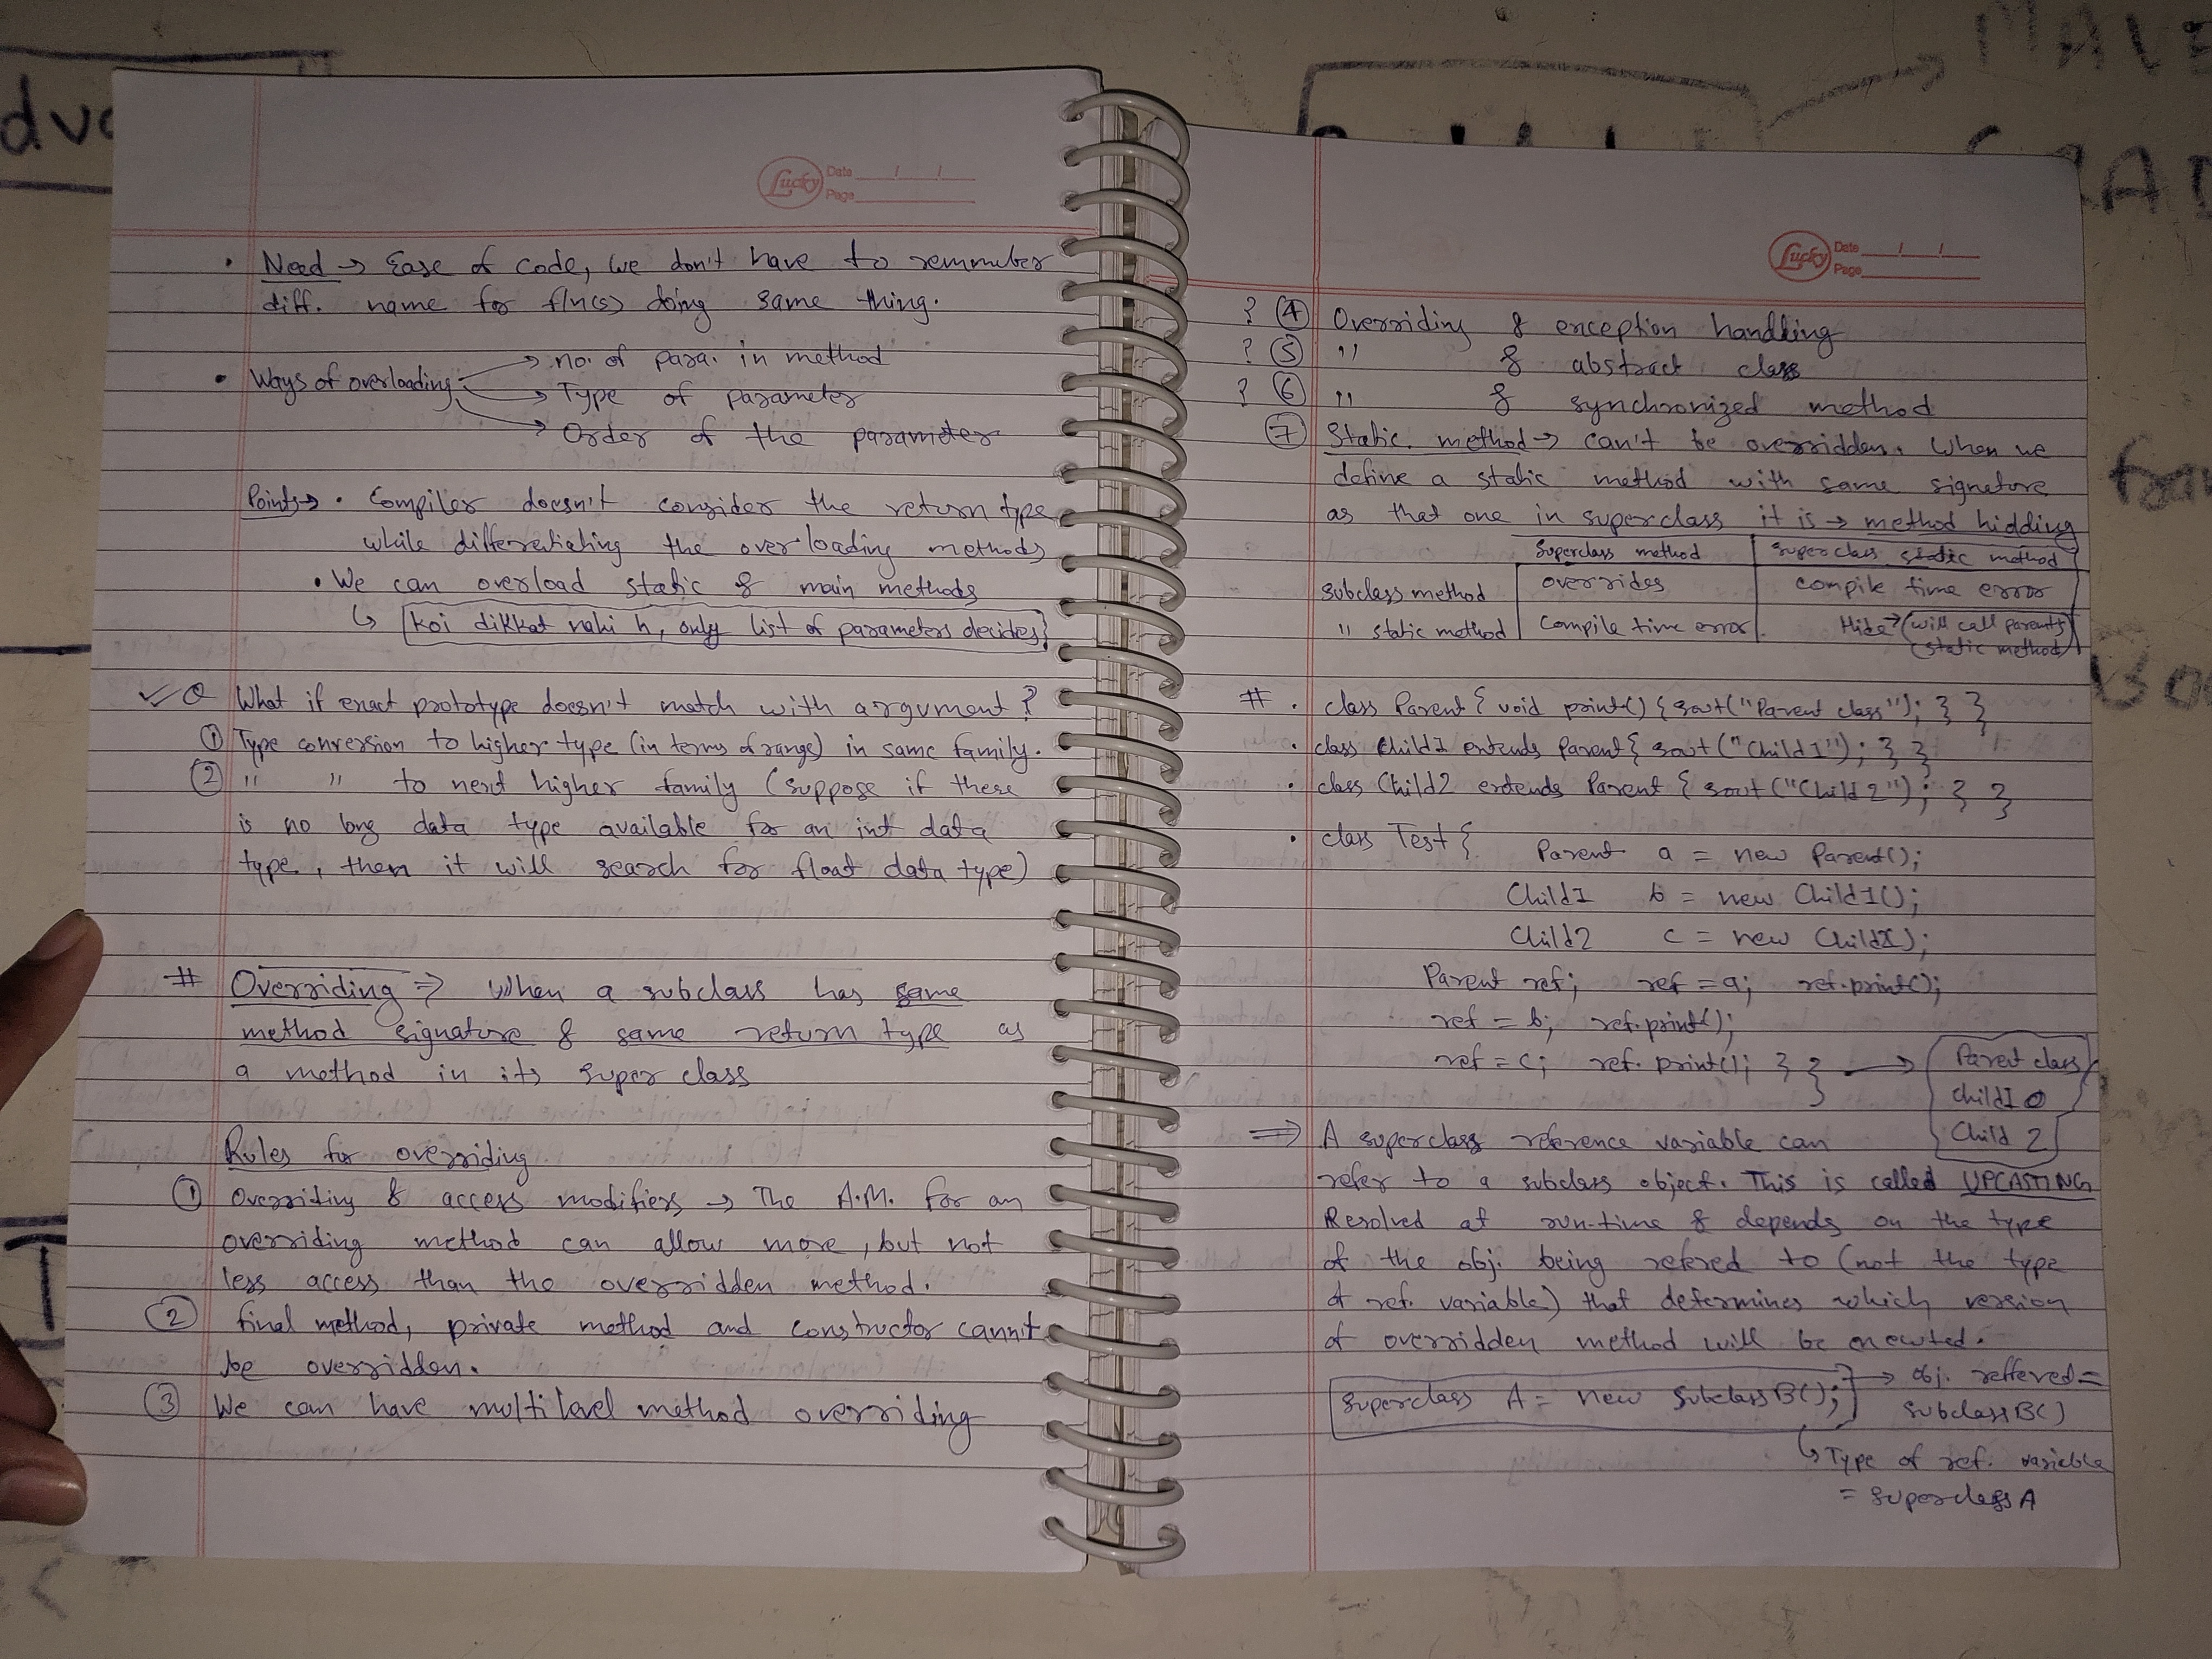 Lucky Date / /
Page
• Need → Ease of code, we don't have to remmuber
diff. name for f/n(s) doing same thing.
• Ways of overloading → no. of para. in method
→ Type of parameter
→ Order of the parameter
Points → • Compiler doesn't consider the return type
while differentiating the overloading methods
• We can overload static & main methods
↳ koi dikkat nahi h, only list of parameters decides
✓ Q What if exact prototype doesn't match with argument?
① Type conversion to higher type (in terms of range) in same family.
② " " to next higher family (suppose if there
is no long data type available for an int data
type, then it will search for float data type)
# Overriding ⇒ When a subclass has same
method signature & same return type as
a method in its super class
Rules for overriding
① Overriding & access modifiers → The A.M. for an
overriding method can allow more, but not
less access than the overridden method.
② final method, private method and constructor cannit
be overridden.
③ We can have multilevel method overriding
Lucky Date / /
Page
? ④ Overriding & exception handling
? ⑤ " & abstract class
? ⑥ " & synchronized method
⑦ Static method → can't be overridden. When we
define a static method with same signature
as that one in superclass it is → method hidding
Superclass method | superclass static method
Subclass method | overrides | compile time error
" static method | Compile time error | Hide → (will call parent's
static method)
# • class Parent { void print() { sout("Parent class"); } }
• class Child1 extends Parent { sout("Child1"); } }
• class Child2 extends Parent { sout("Child 2"); } }
• class Test { Parent a = new Parent();
Child1 b = new Child1();
Child2 c = new Child2();
Parent ref; ref = a; ref.print();
ref = b; ref.print();
ref = c; ref.print(); } } → Parent class
Child1
Child 2
⇒ A superclass reference variable can
refer to a subclass object. This is called UPCASTING
Resolved at run-time & depends on the type
of the obj. being refered to (not the type
of ref. variable) that determines which version
of overridden method will be executed.
Superclass A = new SubclassB(); → obj. reffered =
SubclassB()
↳ Type of ref. variable
= superclassA